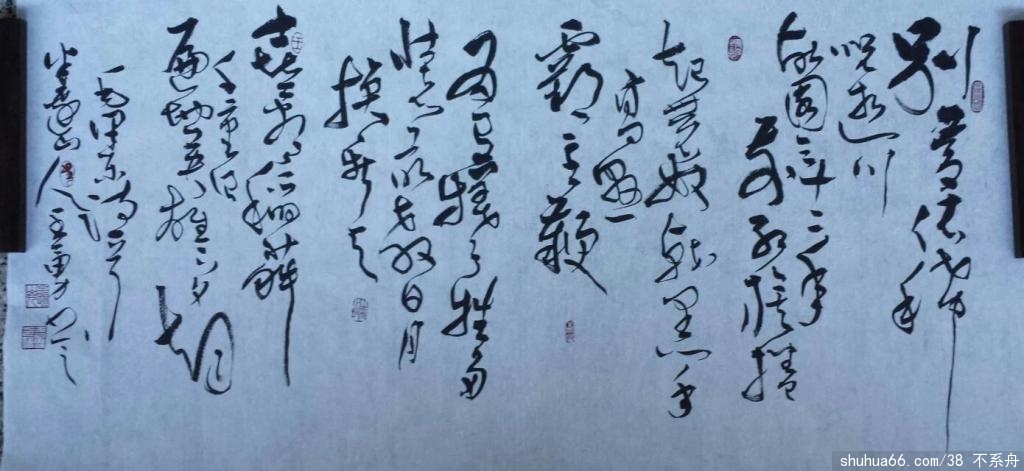 别夢依稀
咒逝川
故園三十二年
前紅旗捲
起農奴戟黑手
高懸
霸主鞭
为有犧牲多
壮志敢教日月
換新天
喜看稻菽
千重浪
遍地英雄下夕烟
毛泽东诗一首
山人
shuhua66.com/38 不系舟